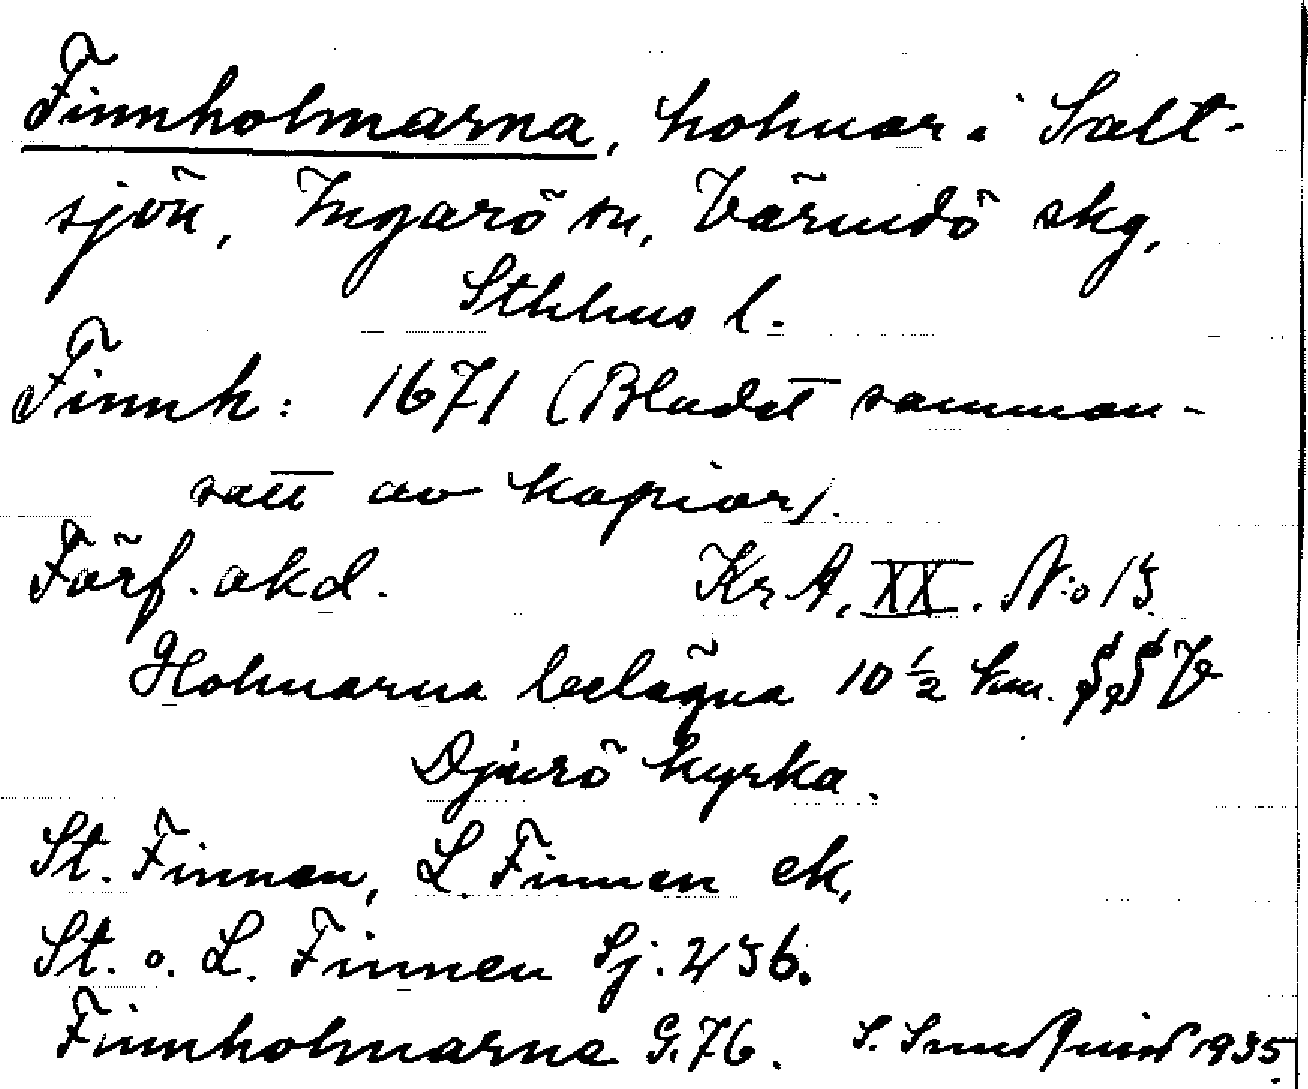 Finnholmarna, holmar i Salt-
sjön, Ingarö sn, Värmdö skg,
Sthlms l.
Finnh: 1671 (Bladet samman-
satt av kopior).
Förf. okd. Kr A. XX. N:o 13
Holmarna belägna 10 1/2 km. SSV
Djurö kyrka.
St. Finnen, L. Finnen ek,
St. o. L. Finnen Sj. 236.
Finnholmarna G. 76. S. 1935.